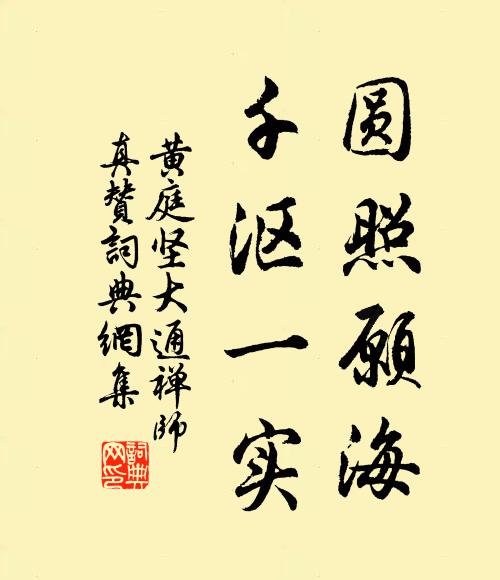 圆照愿海
千沤一实
黄庭坚大通禅师
真赞词典網集
詞典网印